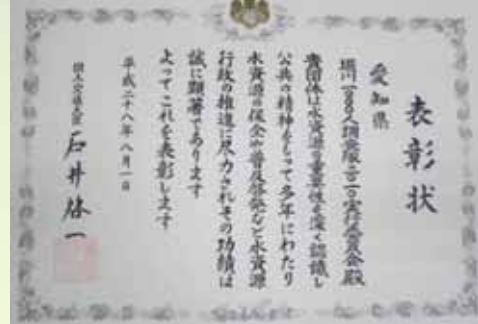 表彰状
愛知県
堀川1000人調査隊2010実行委員会殿
貴団体は水資源の重要性を深く認識し
公共の精神をもって多年にわたり
水資源の保全や普及啓発など水資源
行政の推進に尽力されその功績は
誠に顕著であります
よってこれを表彰します
平成二十八年八月一日
国土交通大臣 石井啓一